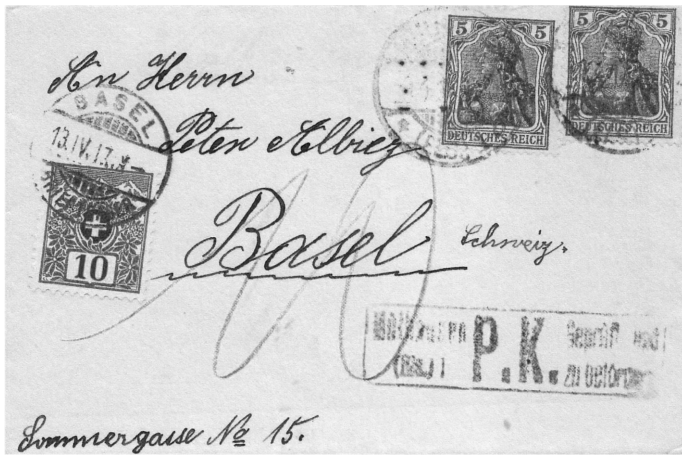 5 5
5 5
DEUTSCHES REICH DEUTSCHES REICH
An Herrn
BASEL
13.IV.17.
Peter Albiez
Basel Schweiz.
10
10
P.K. Geprüft und
(Els.) zu beförd
Sommergasse No 15.